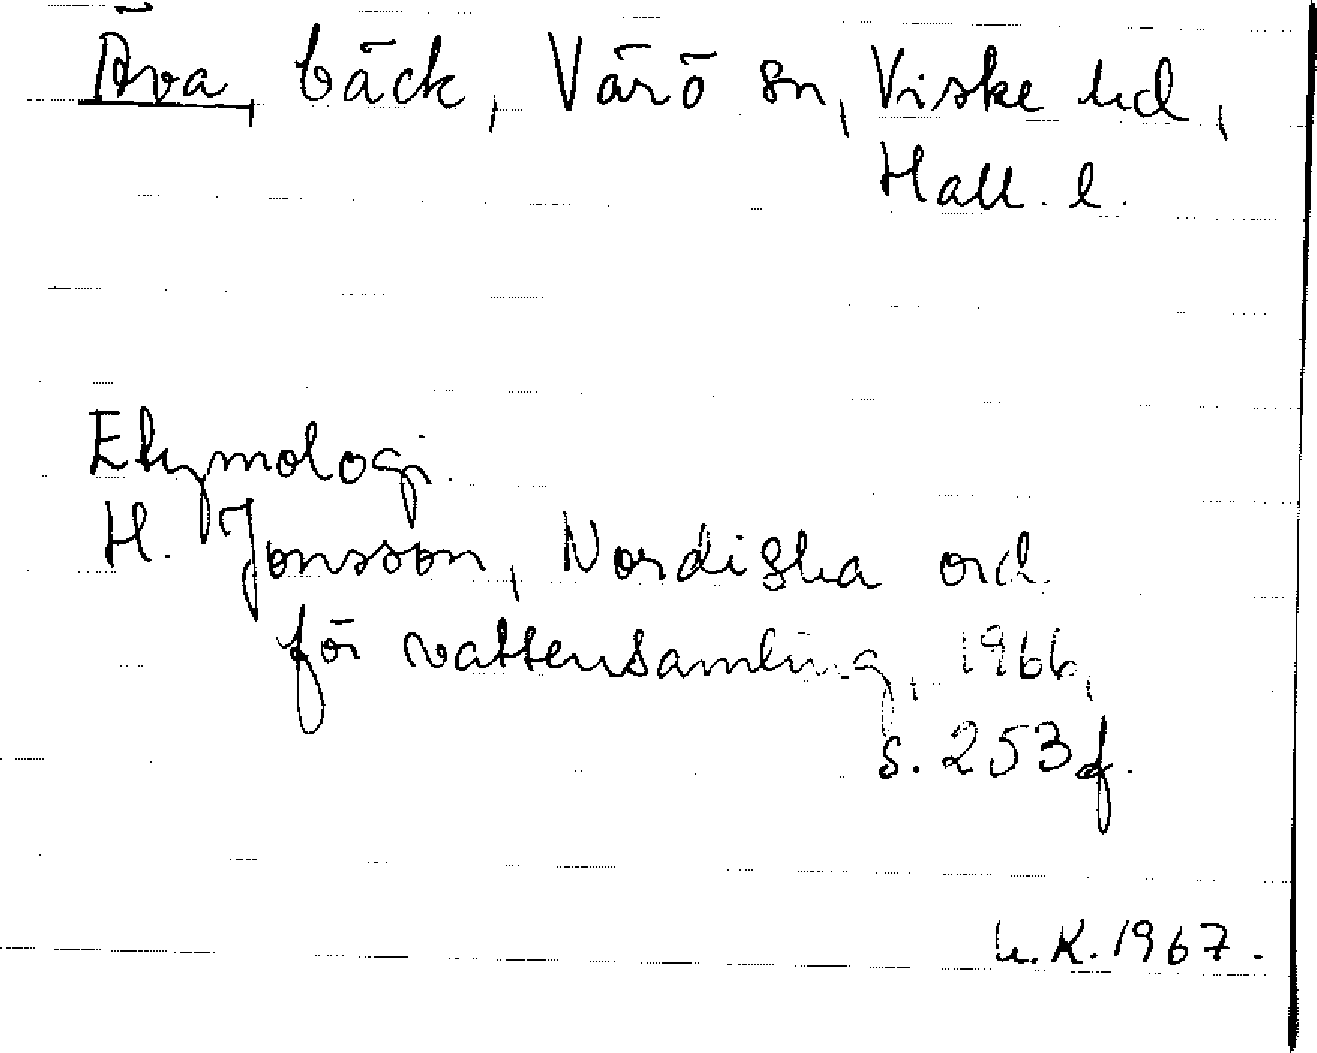 Äva, bäck, Värö sn, Viske hd,
Hall. l.
Etymologi.
H. Jonsson, Nordiska ord
för vattensamling, 1966,
s. 253 f.
L. K. 1967.